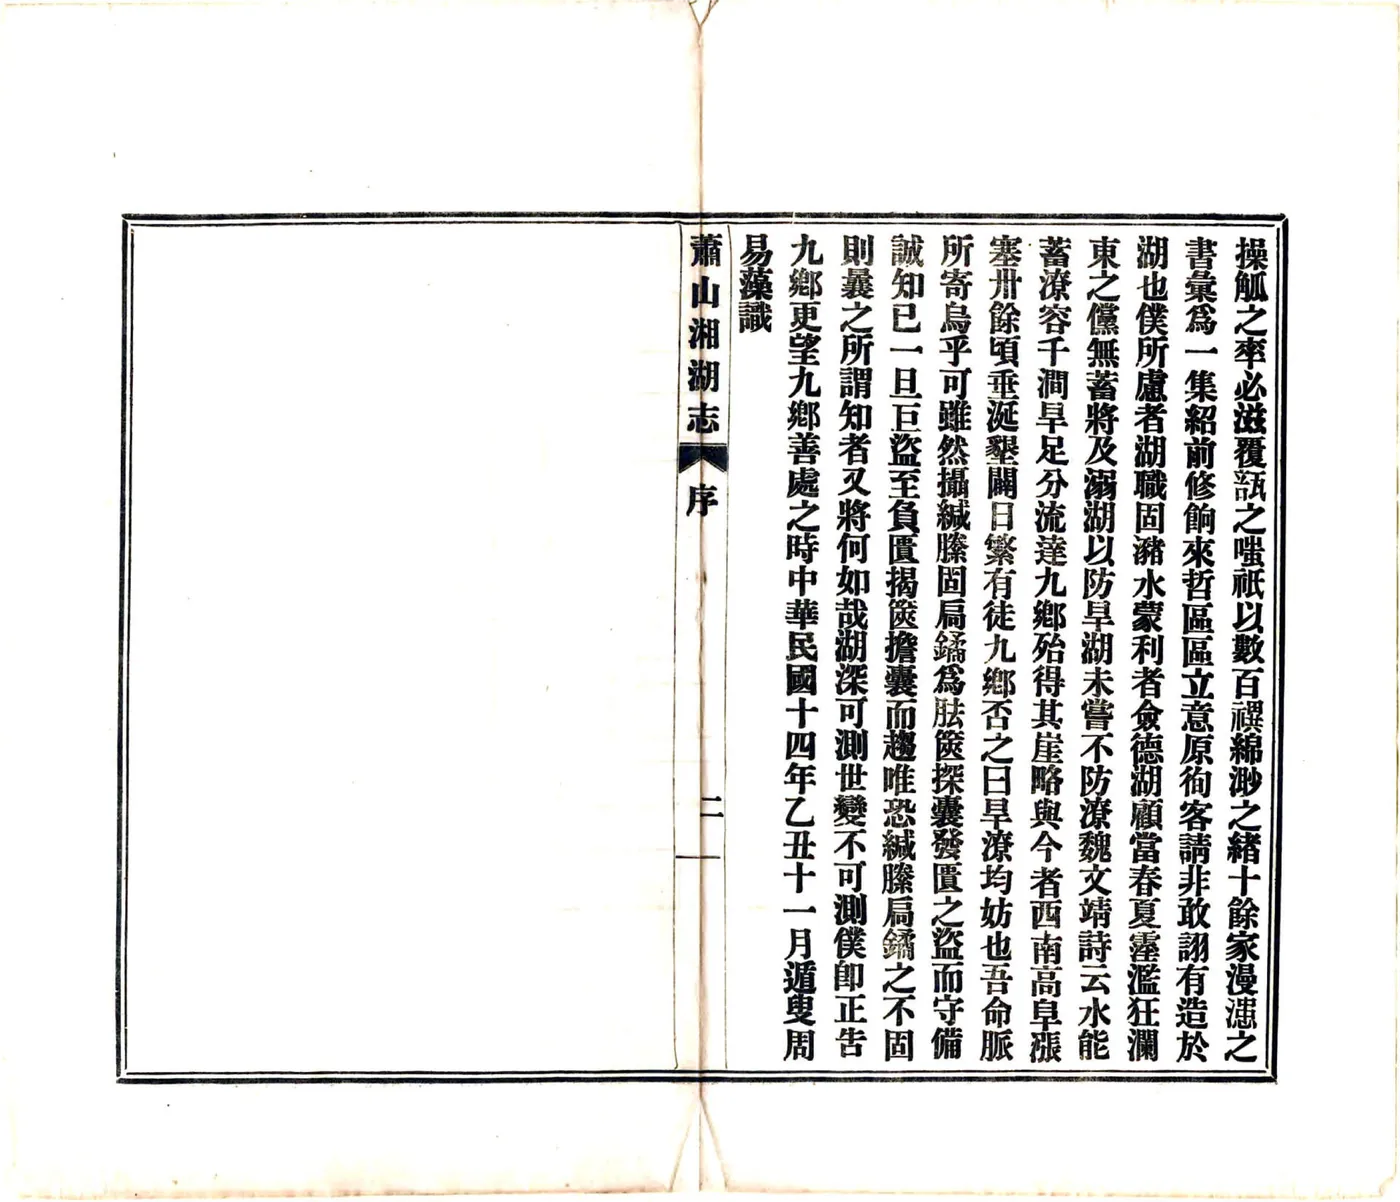 操觚之率必滋覆瓿之嗤祇以數百禩綿渺之緒十餘家漫漶之
書彙爲一集紹前修餉來哲區區立意原徇客請非敢詡有造於
湖也僕所慮者湖職固瀦水蒙利者僉德湖顧當春夏霪濫狂瀾
東之儻無蓄將及溺湖以防旱湖未嘗不防潦魏文靖詩云水能
蓄潦容千澗旱足分流達九鄉殆得其崖略與今者西南高阜漲
塞卅餘頃垂涎墾闢日繁有徒九鄉否之曰旱潦均妨也吾命脈
所寄烏乎可雖然攝緘縢固扃鐍爲胠篋探囊發匱之盜而守備
誠知已一旦巨盜至負匱揭篋擔囊而趨唯恐緘縢扃鐍之不固
則曩之所謂知者又將何如哉湖深可測世變不可測僕卽正告
九鄉更望九鄉善處之時中華民國十四年乙丑十一月遁叟周
易藻識
蕭山湘湖志
序
二